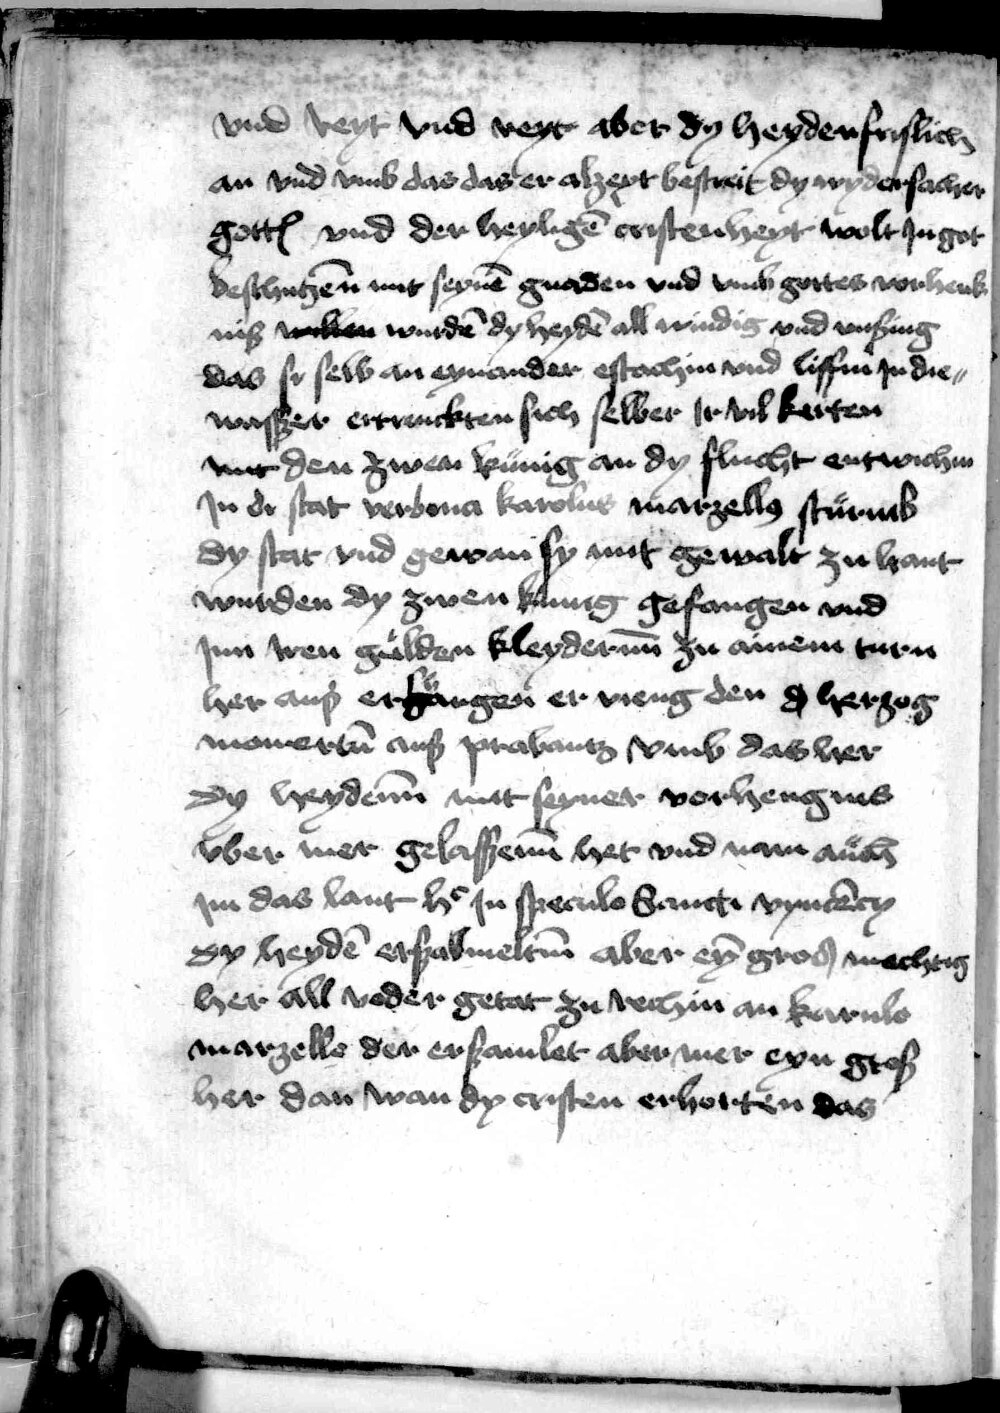 vnd reyt vnd reyt aber dy heyden frislich
an vnd vmb das das er alzeyt bestreit dy wydersacher
gottes vnd der heyligē cristenheyt wolt In got
beschutzēn mit seynē gnaden vnd vmb gottes vorhenk
nis wurdē dy heydē all windig vnd vnsinig
das sy selb an eynander estachin vnd liffin In die
wasszer ertrenckten sich selber Ir vil kerten
mit den zwen künig an dy flucht entwichin
In dr stat verbona karolus marzellus stürmb
dy stat vnd gewan sy mit gewalt zu hant
wurden dy zwen kunig gefangen vnd
Inn iren gulden kleyderinn zu ainem turn
her aus er vieng den herzog
mouertū aus prabantz vmb das her
dy heydenn mit seyner vorhengnis
vber mer gelasszenn het vnd nam auch
im das lant hc In speculo Sancti vyncēcy
Dy heydē erszabmeltinn aber eȳ gros mechtig
her all veder getat zu rechin an karulo
marzello der erszamlet aber mer eyn gros
her dan wan dy cristen erhorten das